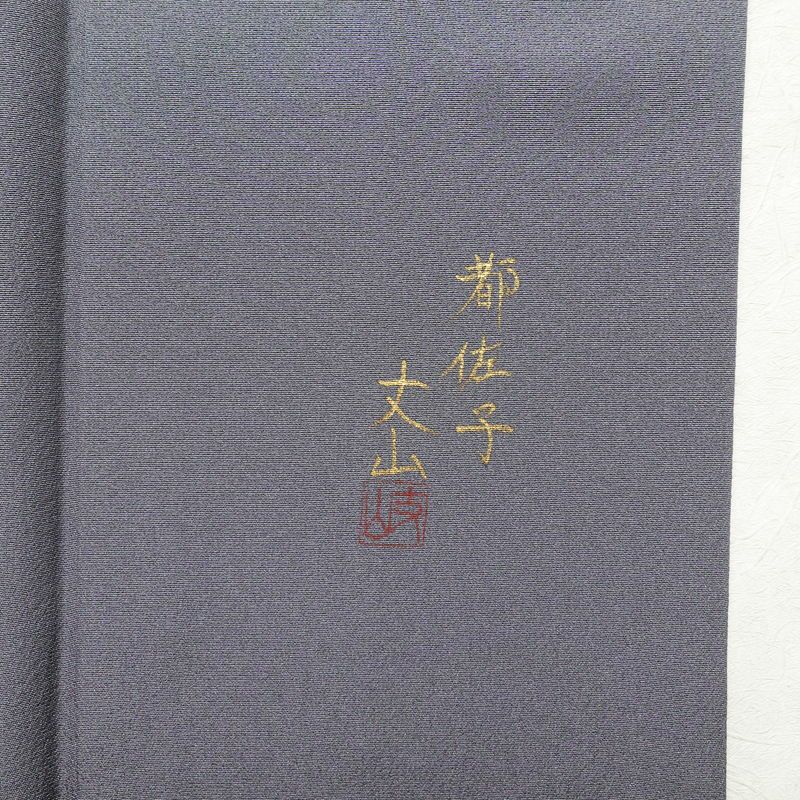 都佐子
丈山